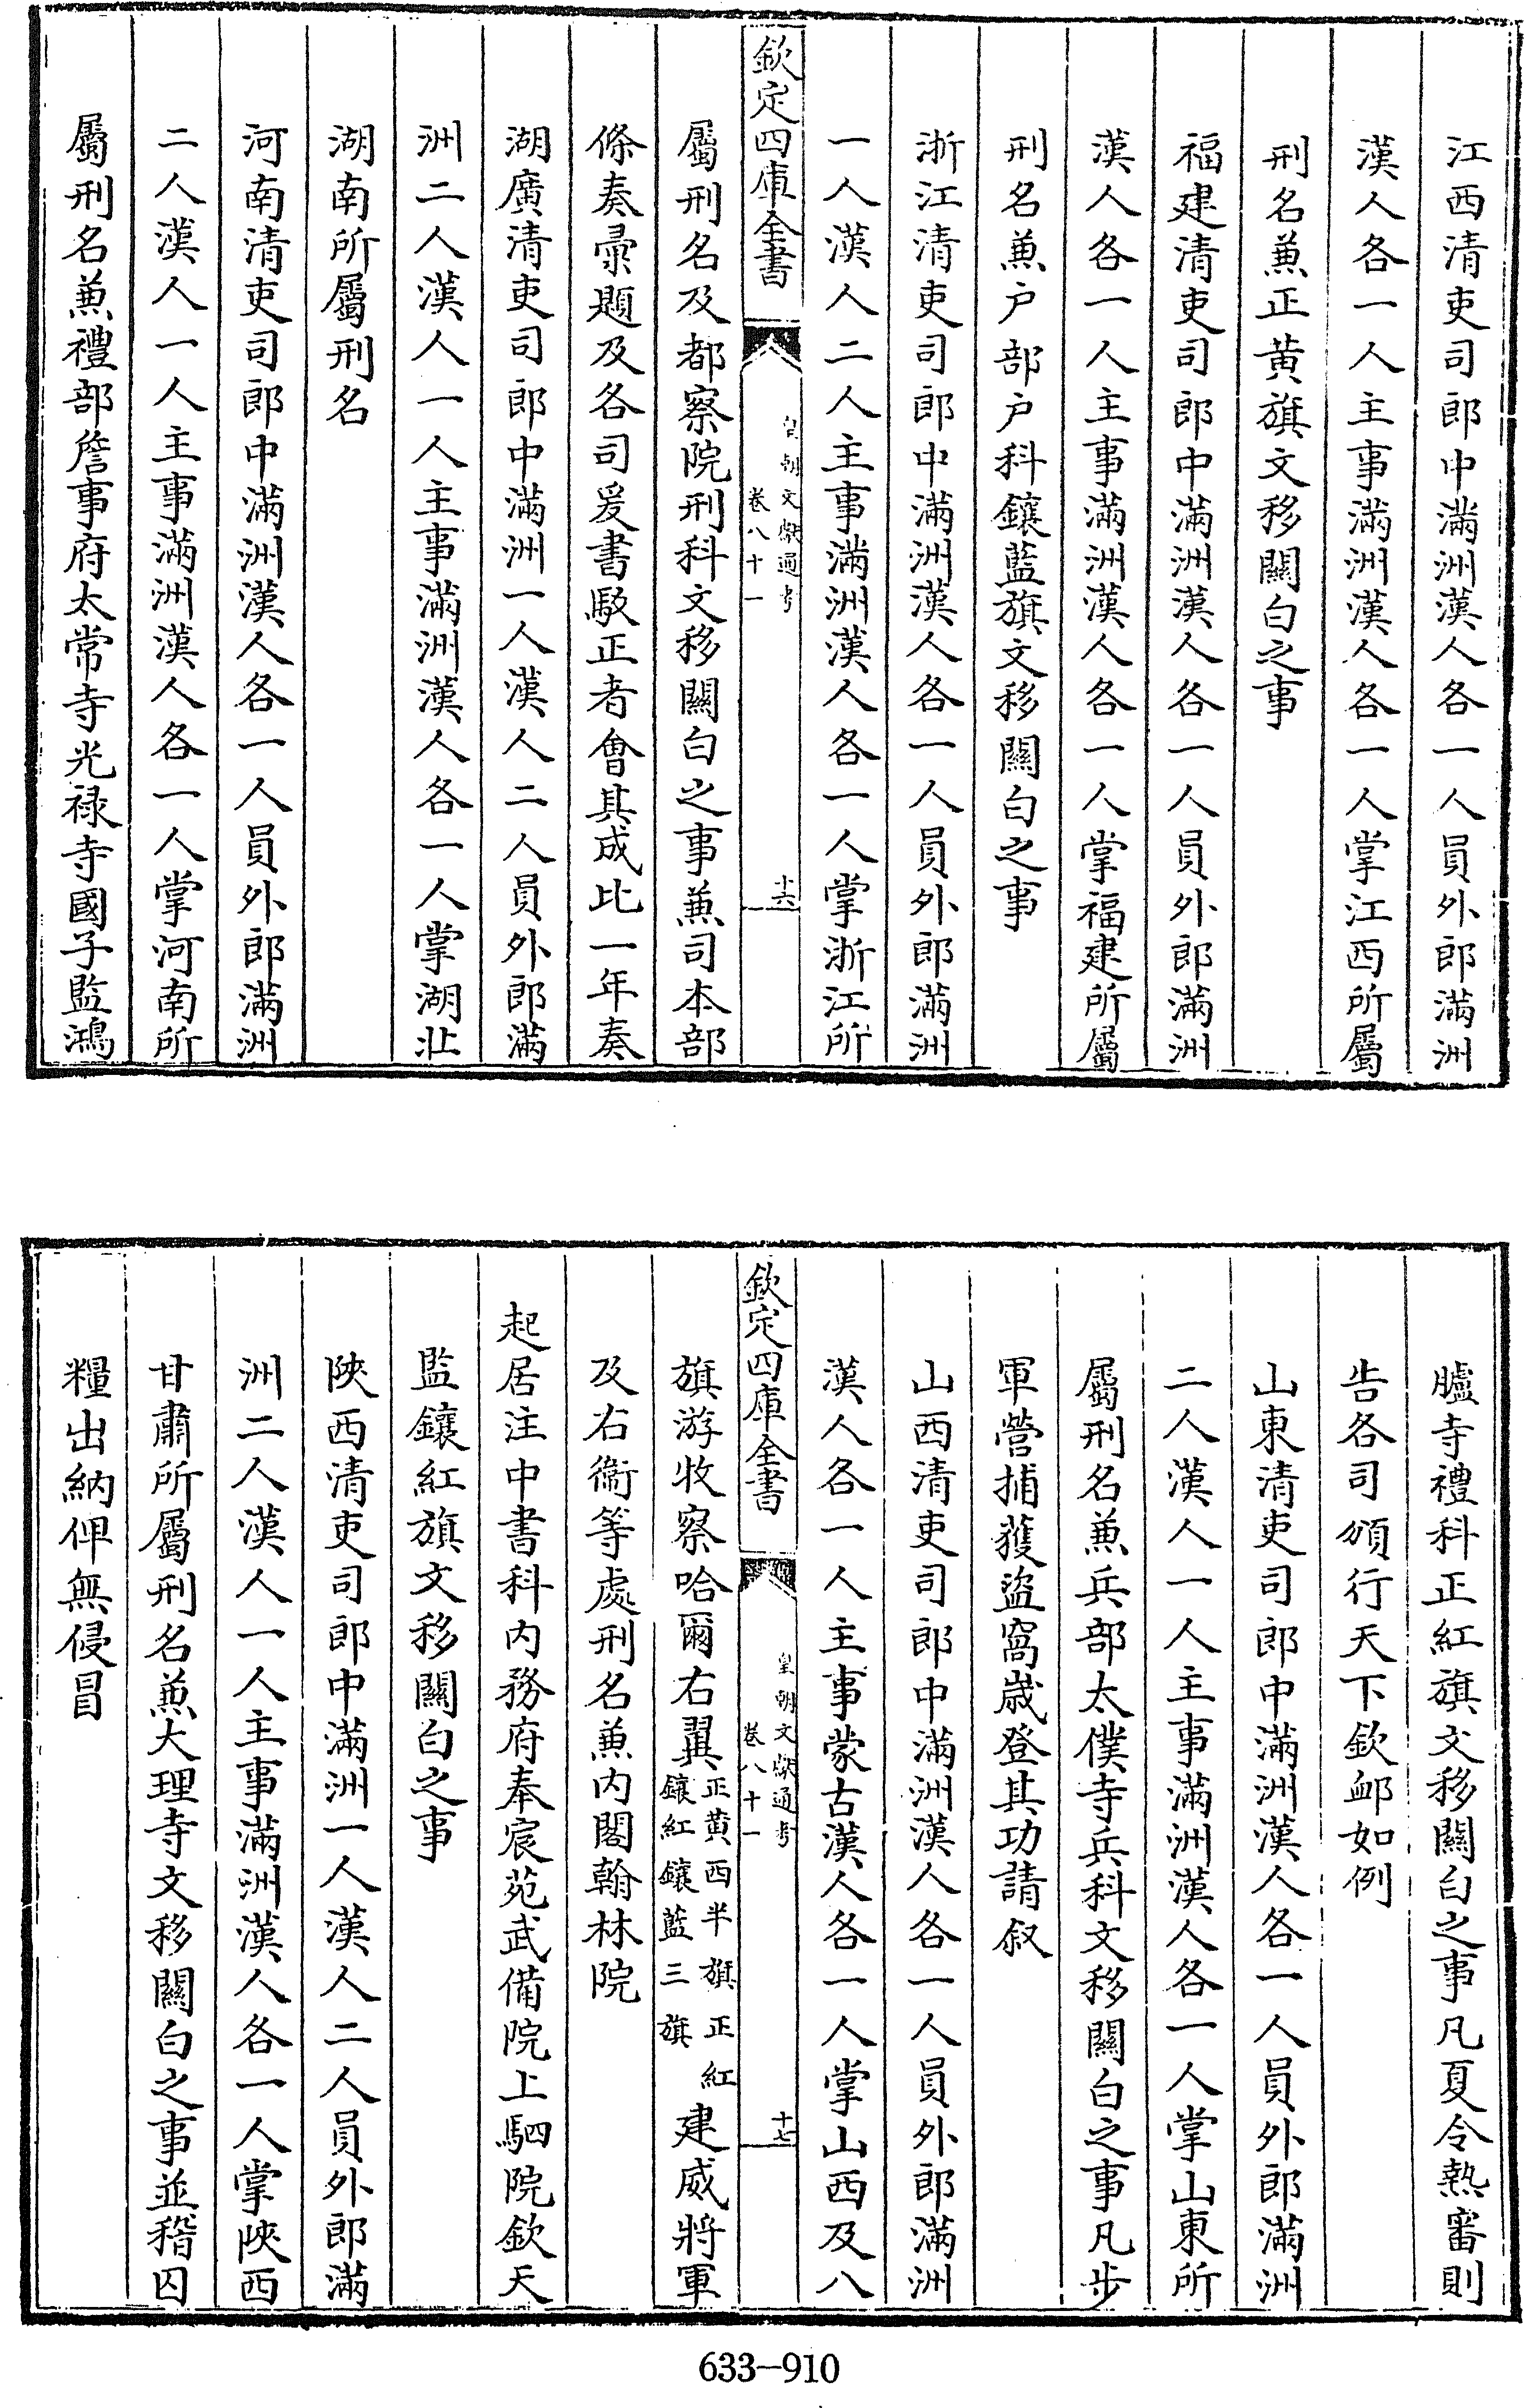 江西清吏司郎中滿洲漢人各一人員外郎滿洲
漢人各一人主事滿洲漢人各一人掌江西所屬
刑名兼正黄旗文移關白之事
福建清吏司郎中滿洲漢人各一人員外郎滿洲
漢人各一人主事滿洲漢人各一人掌福建所屬
刑名兼户部户科鑲藍旗文移關白之事
浙江清吏司郎中滿洲漢人各一人員外郎滿洲
一人漢人二人主事滿洲漢人各一人掌浙江所
欽定四庫全書
皇朝文獻通考
卷八十一
十六
屬刑名及都察院刑科文移關白之事兼司本部
條奏彚題及各司爰書駮正者會其成比一年奏
湖廣清吏司郎中滿洲一人漢人二人員外郎滿
洲二人漢人一人主事滿洲漢人各一人掌湖北
湖南所屬刑名
河南清吏司郎中滿洲漢人各一人員外郎滿洲
二人漢人一人主事滿洲漢人各一人掌河南所
屬刑名兼禮部詹事府太常寺光禄寺國子監鴻
臚寺禮科正紅旗文移關白之事凡夏令熱審則
告各司頒行天下欽䘏如例
山東清吏司郎中滿洲漢人各一人員外郎滿洲
二人漢人一人主事滿洲漢人各一人掌山東所
屬刑名兼兵部太僕寺兵科文移關白之事凡步
軍營捕獲盜窩歲登其功請叙
山西清吏司郎中滿洲漢人各一人員外郎滿洲
漢人各一人主事蒙古漢人各一人掌山西及八
欽定四庫全書
皇朝文獻通考
卷八十一
十七
旗游牧察哈爾右翼正黄西半旗正紅鑲紅鑲藍三旗建威將軍
及右衞等處刑名兼内閣翰林院
起居注中書科内務府奉宸苑武備院上駟院欽天
監鑲紅旗文移關白之事
陜西清吏司郎中滿洲一人漢人二人員外郎滿
洲二人漢人一人主事滿洲漢人各一人掌陜西
甘肅所屬刑名兼大理寺文移關白之事並稽囚
糧出納俾無侵冒
633-910